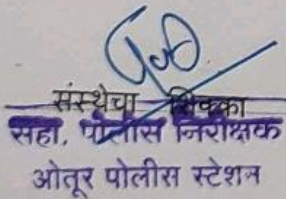 संस्थेचा शिक्का
सहा. पोलीस निरीक्षक
ओतूर पोलीस स्टेशन